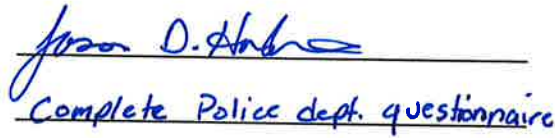 Jason D.
Complete Police dept. questionnaire